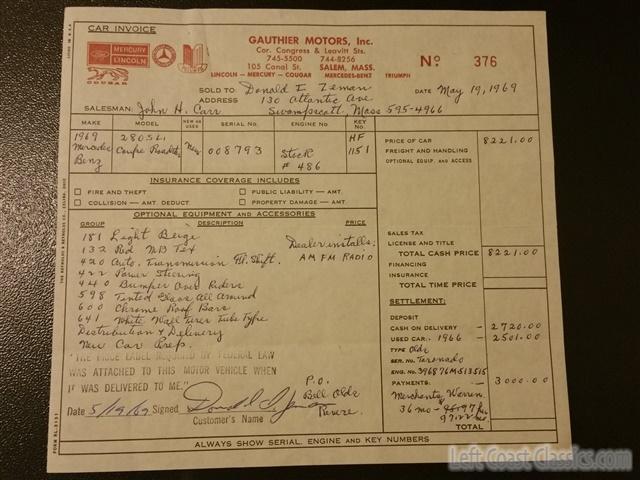 CAR INVOICE
GAUTHIER MOTORS, Inc.
Cor. Congress & Leavitt Sts.
745-5500 744-8256
105 Canal St. SALEM, MASS.
LINCOLN - MERCURY - COUGAR MERCEDES-BENZ TRIUMPH
MERCURY
LINCOLN
COUGAR
No 376
SOLD TO Donald E Zeman DATE May 19, 1969
ADDRESS 130 Atlantic Ave
SALESMAN: John H. Carr Swampscott, Mass 595-4966
MAKE MODEL NEW OR USED SERIAL No. ENGINE No. KEY No.
1969 280SL New 008793 Stock HF
Mercedes Coupe Roadster # 486 1151
Benz
PRICE OF CAR 8221.00
FREIGHT AND HANDLING
OPTIONAL EQUIP. AND ACCESS
INSURANCE COVERAGE INCLUDES
FIRE AND THEFT PUBLIC LIABILITY — AMT.
COLLISION — AMT. DEDUCT. PROPERTY DAMAGE — AMT.
OPTIONAL EQUIPMENT AND ACCESSORIES
GROUP DESCRIPTION PRICE
181 Light Beige
132 Red MB Tex Dealer installs:
420 Auto. Transmission Fl. Shift. AM FM RADIO
422 Power Steering
440 Bumper Over Riders
598 Tinted Glass All Around
600 Chrome Roof Bars
641 White Wall Tires Tube Type
Distribution & Delivery
New Car Prep.
SALES TAX
LICENSE AND TITLE
TOTAL CASH PRICE 8221.00
FINANCING
INSURANCE
TOTAL TIME PRICE
SETTLEMENT:
DEPOSIT
CASH ON DELIVERY - 2720.00
USED CAR: 1966 - 2501.00
TYPE Olds
SER. No. Toronado
ENG. No. 396876M513515
PAYMENTS: - 3000.00
Merchants Warren
36 mo - 97 per
97.22 mo
TOTAL
"THE PRICE LABEL REQUIRED BY FEDERAL LAW
WAS ATTACHED TO THIS MOTOR VEHICLE WHEN
IT WAS DELIVERED TO ME."
Date 5/19/69 Signed
Customer's Name
P.O.
Bill Olds
Revere
ALWAYS SHOW SERIAL, ENGINE AND KEY NUMBERS
Left Coast Classics.com